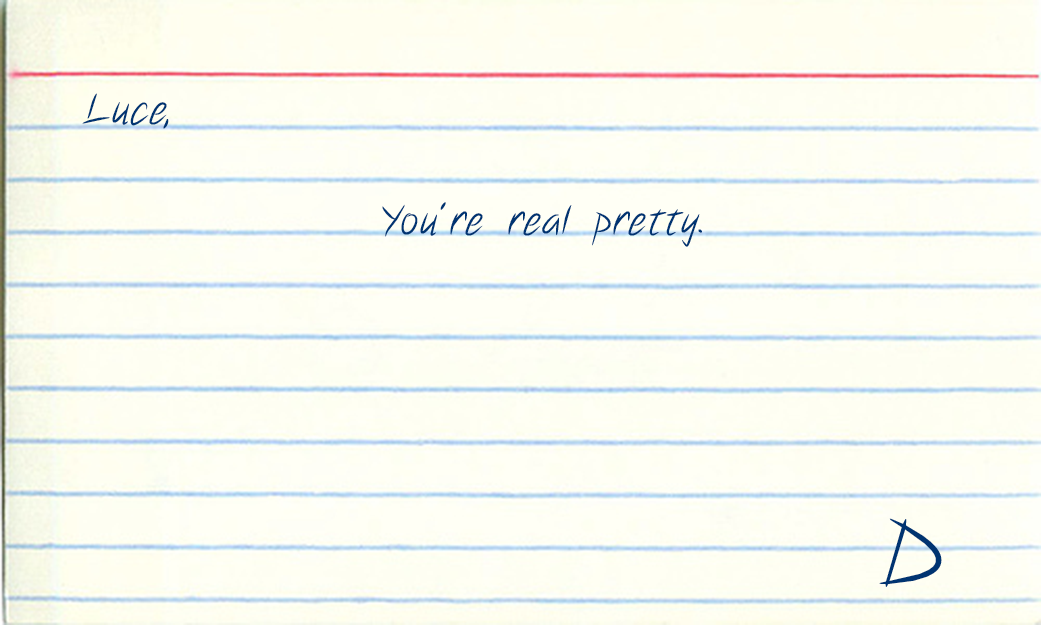 Luce,
You're real pretty.
D